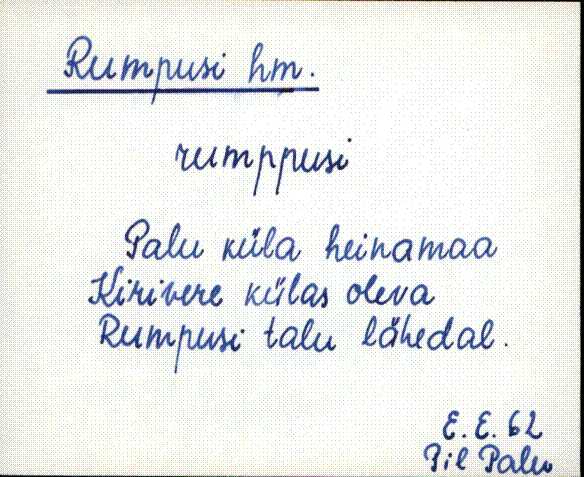 Rumpusi hm.
rumppusi
Palu küla heinamaa
Kirivere külas oleva
Rumpusi talu lähedal.
E. E. 62
Pil Palu